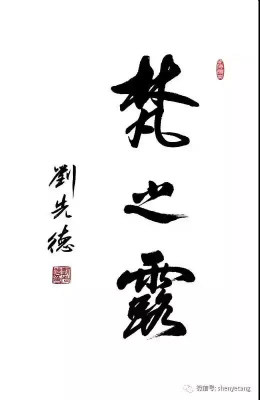 梵之露
劉先德
微信号: shenyetang